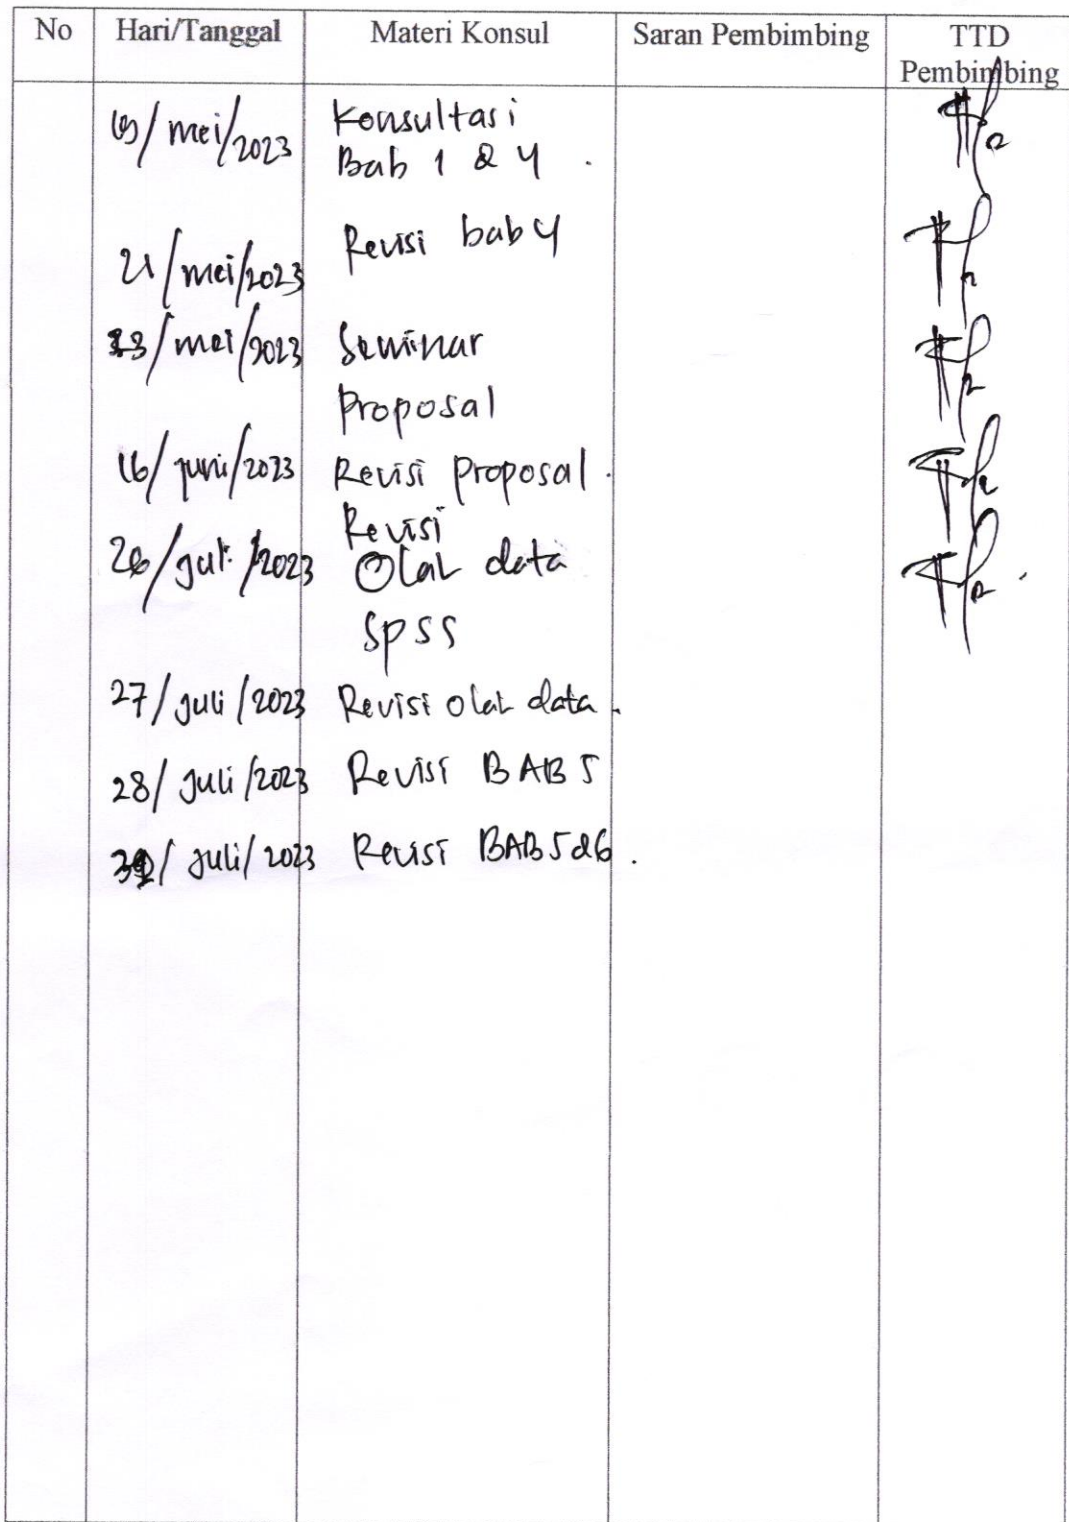 No Hari/Tanggal Materi Konsul Saran Pembimbing TTD
Pembimbing
/ mei/2023 Konsultasi
Bab 1 & 4
21/mei/2023 Revisi bab 4
/mei/2023 Seminar
Proposal
16/juni/2023 Revisi Proposal.
Revisi
26/juli/2023 Olah data
SPSS
27/juli/2023 Revisi olah data.
28/juli/2023 Revisi BAB 5
/juli/2023 Revisi BAB 5 & 6.